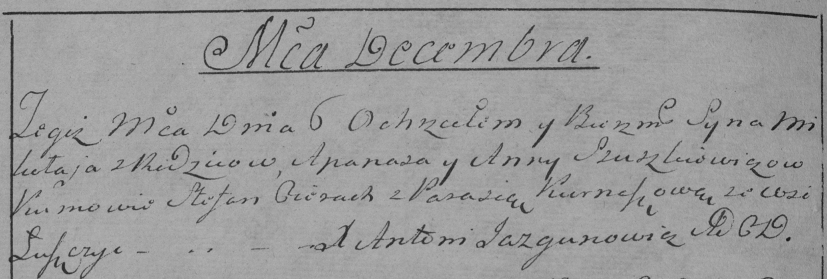 Mca Decembra.
Tegiż Mca Dnia 6 Ochrzciłem y Bierzm Syna Mi
kołaja z Rodzicow, Apanasa y Anny Szuszkiewiczow
Kumowie Stefan Bierach z Parasią Kurneszową ze wsi
Łuszczyc - .. - X Antoni Jazgunowicz